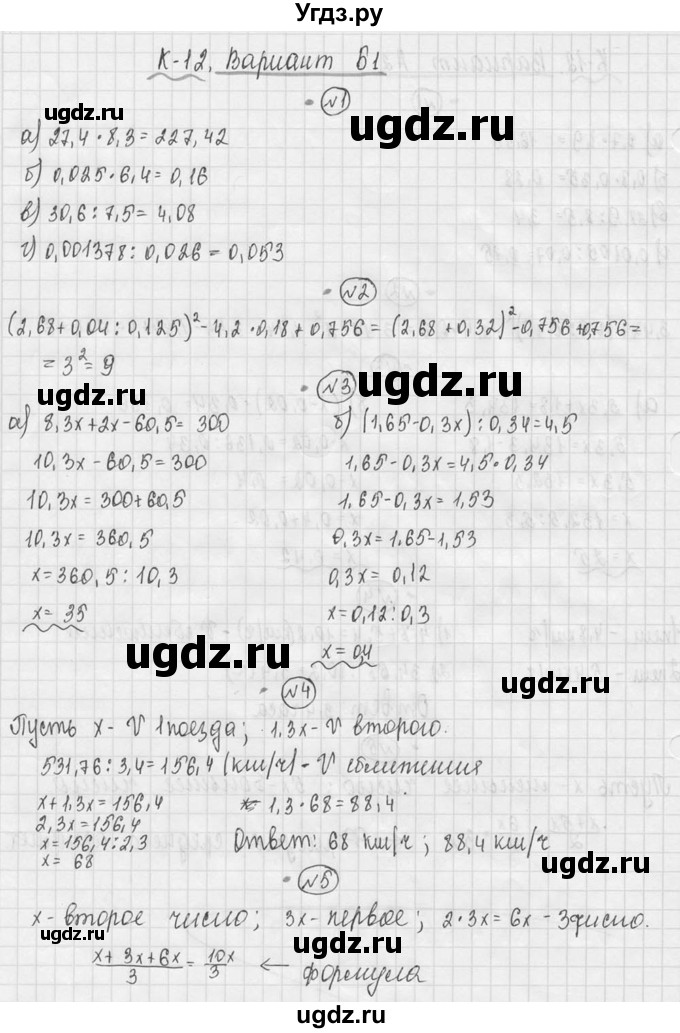 Угдз.ру
К-12. Вариант Б1
№1
ugdz.ru
ugdz.ru
а) 27,4 · 8,3 = 227,42
б) 0,025 · 6,4 = 0,16
в) 30,6 : 7,5 = 4,08
г) 0,001378 : 0,026 = 0,053
ugdz.ru
№2
(2,68+0,04 : 0,125)² - 4,2 · 0,18 + 0,756 = (2,68 + 0,32)² - 0,756 + 0,756 =
= 3² = 9
ugdz.ru
№3
ugdz.ru
а) 8,3x + 2x - 60,5 = 300
10,3x - 60,5 = 300
10,3x = 300 + 60,5
10,3x = 360,5
x = 360,5 : 10,3
x = 35
б) (1,65 - 0,3x) : 0,34 = 4,5
1,65 - 0,3x = 4,5 · 0,34
1,65 - 0,3x = 1,53
0,3x = 1,65 - 1,53
0,3x = 0,12
x = 0,12 : 0,3
x = 0,4
ugdz.ru
ugdz.ru
№4
Пусть x - V 1 поезда; 1,3x - V второго.
531,76 : 3,4 = 156,4 (км/ч) - V сближения
x + 1,3x = 156,4
2,3x = 156,4
x = 156,4 : 2,3
x = 68
1,3 · 68 = 88,4
Ответ: 68 км/ч; 88,4 км/ч
ugdz.ru
ugdz.ru
№5
x - второе число; 3x - первое; 2 · 3x = 6x - 3 число.
ugdz.ru
ugdz.ru
x + 3x + 6x / 3 = 10x / 3 ← формула
ugdz.ru